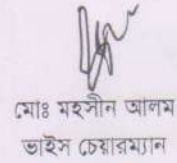 মোঃ মহসীন আলম
ভাইস চেয়ারম্যান